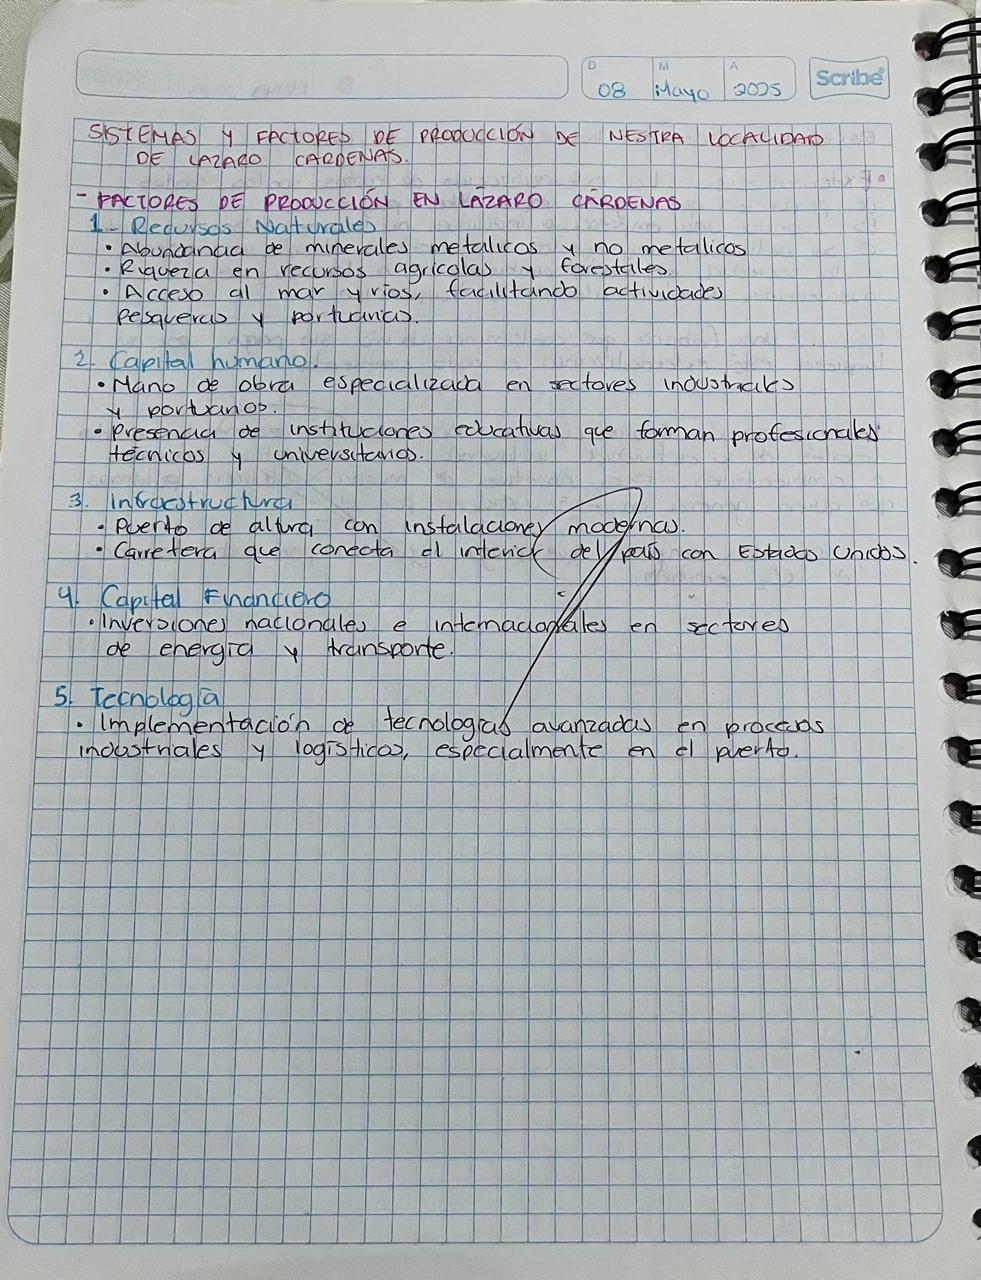 D M A
08 Mayo 2025
Scribe
SISTEMAS Y FACTORES DE PRODUCCIÓN DE NESTRA LOCALIDAD
DE LAZARO CARDENAS.
- FACTORES DE PRODUCCIÓN EN LÁZARO CÁRDENAS
1- Recursos Naturales
• Abundancia de minerales metalicos y no metalicos
• Riqueza en recursos agrícolas y forestales
• Acceso al mar y ríos, facilitando actividades
pesqueras y portuarias.
2. Capital humano.
• Mano de obra especializada en sectores industriales
y portuarios.
• Presencia de instituciones educativas que forman profesionales
técnicos y universitarios.
3. Infraestructura
• Puerto de altura con instalaciones modernas.
• Carretera que conecta el interior del país con Estados Unidos.
4. Capital Financiero
• Inversiones nacionales e internacionales en sectores
de energía y transporte.
5. Tecnología
• Implementación de tecnologías avanzadas en procesos
industriales y logísticos, especialmente en el puerto.